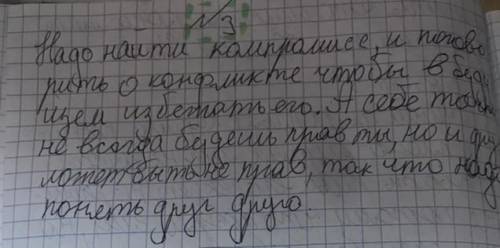 №3
Надо найти компрамисс, и погово
рить о конфликте чтобы в буду
щем избежать его. А себе
не всегда будешь прав ты, но и друг
может быть не прав, так что надо
понять друг друга.